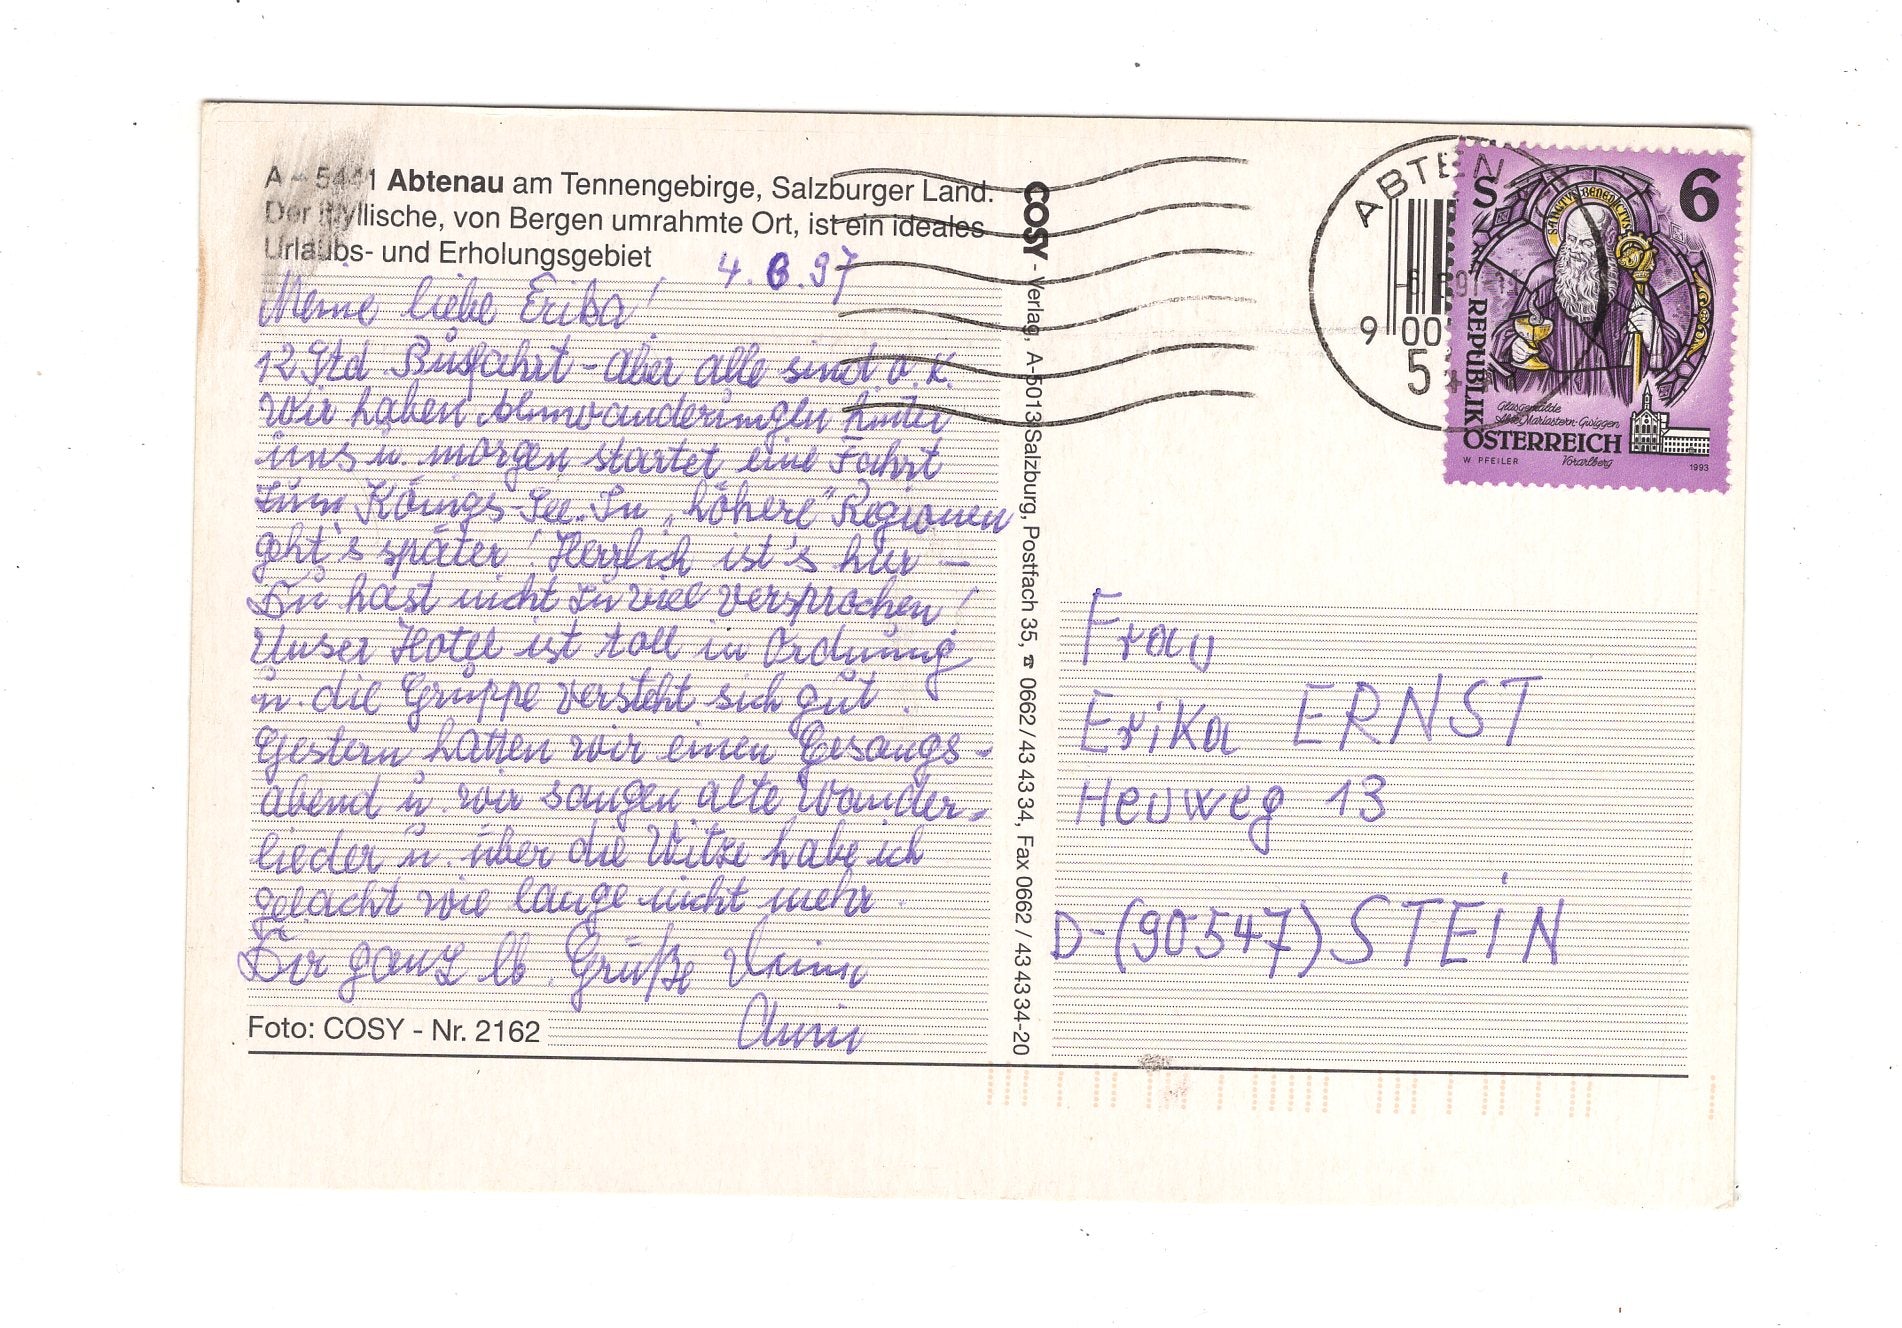 A - 5441 Abtenau am Tennengebirge, Salzburger Land.
Der idyllische, von Bergen umrahmte Ort, ist ein ideales
Urlaubs- und Erholungsgebiet
4.6.97
Meine liebe Erika!
12 Std Busfahrt - aber alle sind o.K.
wir haben Almwanderungen hinter
uns u. morgen startet eine Fahrt
zum Königs-See. In „höhere" Regionen
geht's später! Herrlich ist's hier -
Du hast nicht zu viel versprochen!
Unser Hotel ist toll in Ordnung
u. die Gruppe versteht sich gut.
Gestern hatten wir einen Gesangs-
abend u. wir sangen alte Wander-
lieder u. über die Witze habe ich
gelacht wie lange nicht mehr.
Dir ganz lb. Grüße
Foto: COSY - Nr. 2162
COSY - Verlag, A-5013 Salzburg, Postfach 35, ☎ 0662/43 43 34, Fax 0662/43 43 34-20
ABTEN
9 00
5
S 6
SANCTVS BENEDICTVS
REPUBLIK
ÖSTERREICH
Glasgemälde
Abtei Mariastern-Gwiggen
Vorarlberg
W. PFEILER
1993
Frau
Erika ERNST
Heuweg 13
D-(90547) STEIN